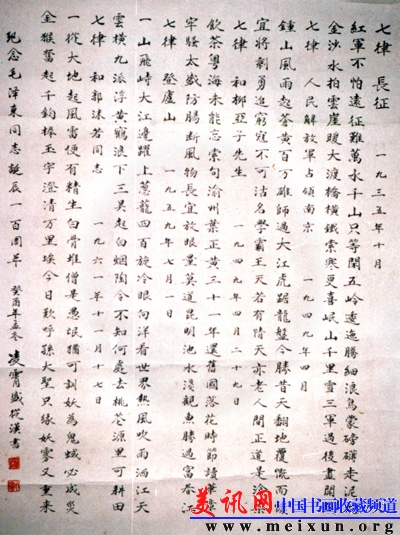 七律 長征 一九三五年十月
紅軍不怕遠征難萬水千山只等閑五嶺逶迤騰細浪烏蒙磅礴走泥丸
金沙水拍雲崖暖大渡橋橫鐵索寒更喜岷山千里雪三軍過後盡開顏
七律 人民解放軍占領南京 一九四九年四月
鍾山風雨起蒼黃百萬雄師過大江虎踞龍盤今勝昔天翻地覆慨而慷
宜將剩勇追窮寇不可沽名學霸王天若有情天亦老人間正道是滄桑
七律 和柳亞子先生 一九四九年四月二十九日
飲茶粵海未能忘索句渝州葉正黃三十一年還舊國落花時節讀華章
牢騷太盛防腸斷風物長宜放眼量莫道昆明池水淺觀魚勝過富春江
七律 登廬山 一九五九年七月一日
一山飛峙大江邊躍上葱蘢四百旋冷眼向洋看世界熱風吹雨洒江天
雲橫九派浮黃鶴浪下三吳起白烟陶令不知何處去桃花源里可耕田
七律 和郭沫若同志 一九六一年十一月十七日
一從大地起風雷便有精生白骨堆僧是愚氓猶可訓妖為鬼蜮必成災
金猴奮起千鈞棒玉宇澄清萬里埃今日歡呼孫大聖只緣妖霧又重來
紀念毛澤東同志誕辰一百周年 癸酉年孟冬 凌霄盛從漢書
美讯网 中国书画收藏频道
www.meixun.org